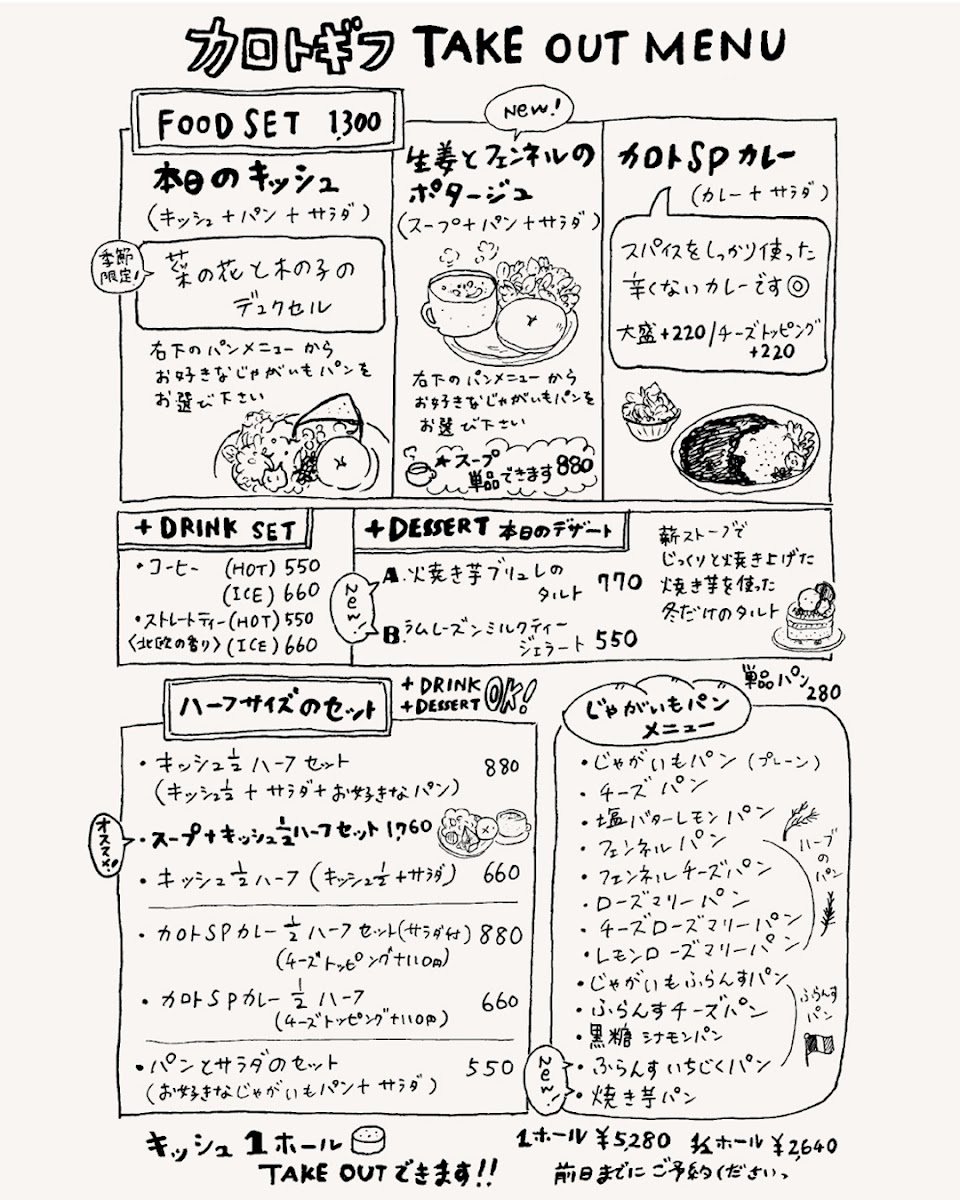 カロトギフ TAKE OUT MENU
FOOD SET 1,300
本日のキッシュ
(キッシュ+パン+サラダ)
季節
限定!
菜の花と木の子の
デュクセル
右下のパンメニューから
お好きなじゃがいもパンを
お選び下さい
New!
生姜とフェンネルの
ポタージュ
(スープ+パン+サラダ)
右下のパンメニューから
お好きなじゃがいもパンを
お選び下さい
★スープ
単品できます 880
カロトSPカレー
(カレー+サラダ)
スパイスをしっかり使った
辛くないカレーです◎
大盛+220/チーズトッピング
+220
+DRINK SET
・コーヒー (HOT) 550
(ICE) 660
・ストレートティー(HOT) 550
〈北欧の香り〉(ICE) 660
+DESSERT 本日のデザート
New!
A.焼き芋ブリュレの
タルト 770
B.ラムレーズンミルクティー
ジェラート 550
薪ストーブで
じっくりと焼き上げた
焼き芋を使った
冬だけのタルト
ハーフサイズのセット
+DRINK
+DESSERT OK!
・キッシュ1/2ハーフセット 880
(キッシュ1/2+サラダ+お好きなパン)
オススメ!
・スープ+キッシュ1/2ハーフセット 1,760
・キッシュ1/2ハーフ(キッシュ1/2+サラダ) 660
・カロトSPカレー1/2ハーフセット(サラダ付) 880
(チーズトッピング+110円)
・カロトSPカレー1/2ハーフ 660
(チーズトッピング+110円)
・パンとサラダのセット 550
(お好きなじゃがいもパン+サラダ)
単品パン
280
じゃがいもパン
メニュー
・じゃがいもパン(プレーン)
・チーズパン
・塩バターレモンパン
・フェンネルパン
・フェンネルチーズパン
・ローズマリーパン
・チーズローズマリーパン
・レモンローズマリーパン
ハーブ
の
パン
・じゃがいもふらんすパン
・ふらんすチーズパン
・黒糖シナモンパン
・ふらんすいちじくパン
ふらんす
パン
New!
・焼き芋パン
キッシュ1ホール
TAKE OUTできます!!
1ホール¥5,280 1/2ホール¥2,640
前日までにご予約ください。